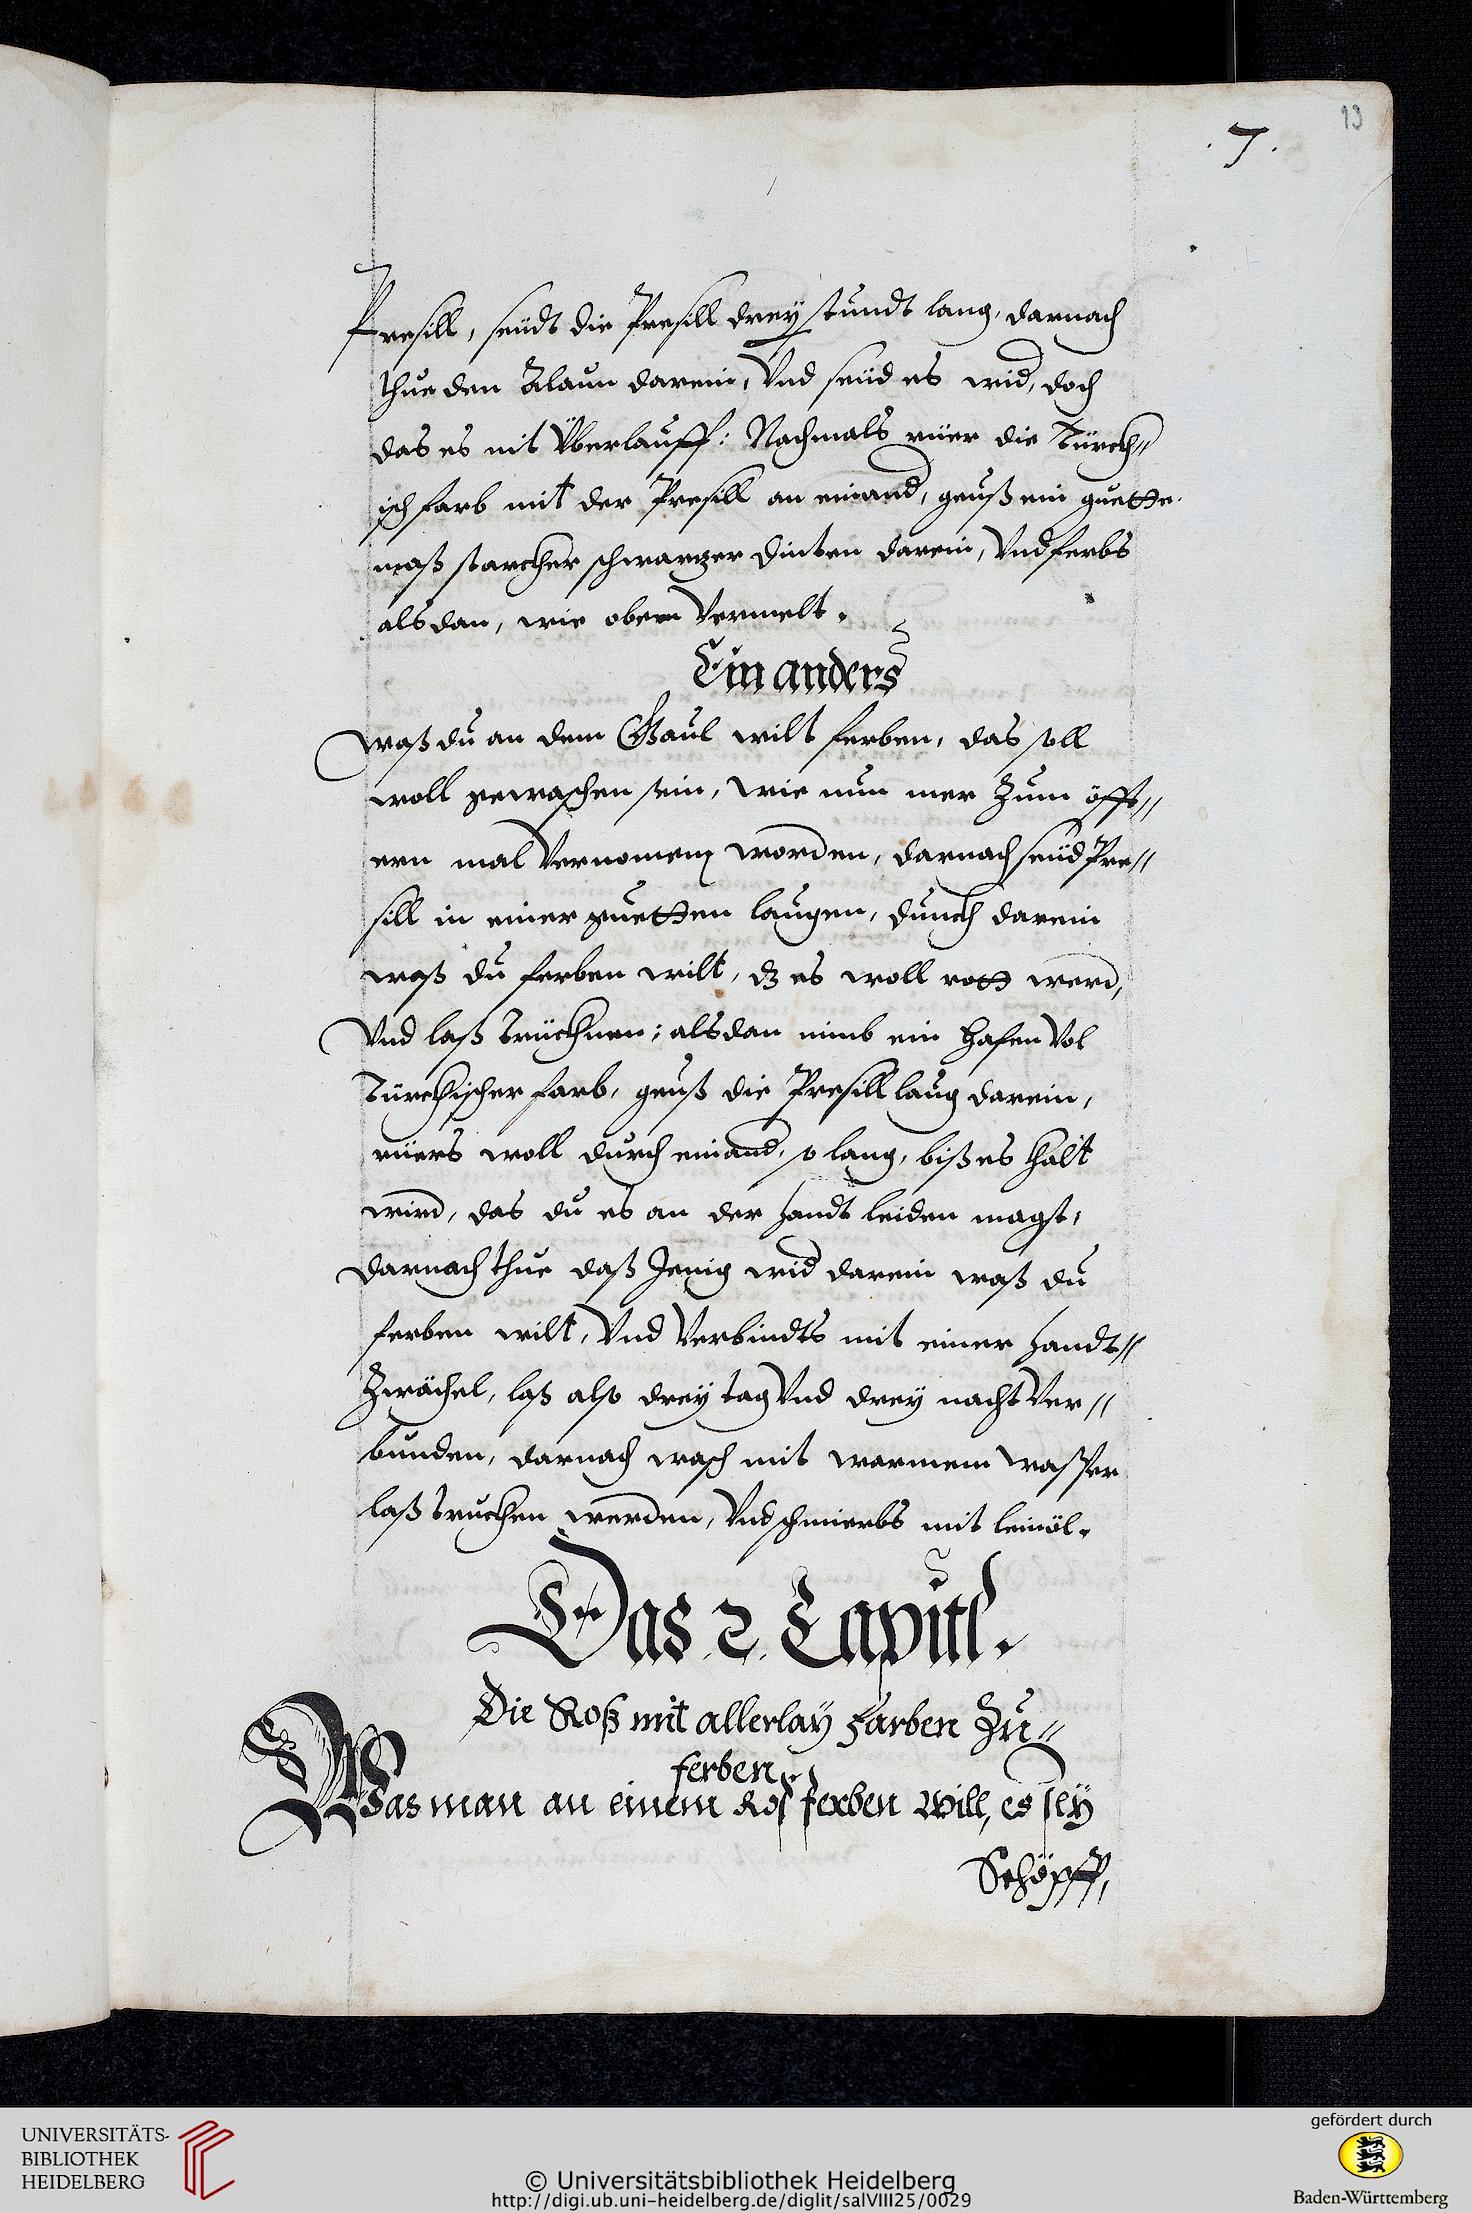 19
.7.
Presill, seüdt die Presill dreӱ stundt lang, darnach
thue den Alaun darein, Vnd seüd es wid, doch
das es nit Überlauff: Nachmals rüer die Türckh〃
isch farb mit der Presill an einand, geuß ein guette
maß starckher schwarzer dinten darein, Vnd ferbs
alsdan, wie oben Vermelt.
Ein anders
Waß du an dem Gaul wilt ferben, das soll
woll gewaschen sein, wie nun mer Zum öfft〃
ern mal Vernomen worden, darnach seüd Pre〃
sill in einer guetten laugen, dunckh darein
waß du ferben wilt, dz es woll rott werd,
Vnd laß trückhnen; alsdan nimb ein hafen Vol
Türckhischer farb, geuß die Presill laug darein,
rüers woll durch einand, so lang, biß es khalt
wird, das du es an der handt leiden magst,
darnach thue daß Jenig wid darein waß du
ferben wilt, Vnd Verbindts mit einer handt〃
Zwächel, laß also dreӱ tag Vnd dreӱ nacht Ver〃
bunden, darnach wasch mit warmem wasser
laß truckhen werden, Vnd schmierbs mit leinöl.
Das .2. Capitl.
Die Roß mit allerlaӱ Farben Zu〃
ferben.
Was man an einem Roß ferben will, es seӱ
Schöpff,
UNIVERSITÄTS-
BIBLIOTHEK
HEIDELBERG
© Universitätsbibliothek Heidelberg
http://digi.ub.uni-heidelberg.de/diglit/salVIII25/0029
gefördert durch
Baden-Württemberg